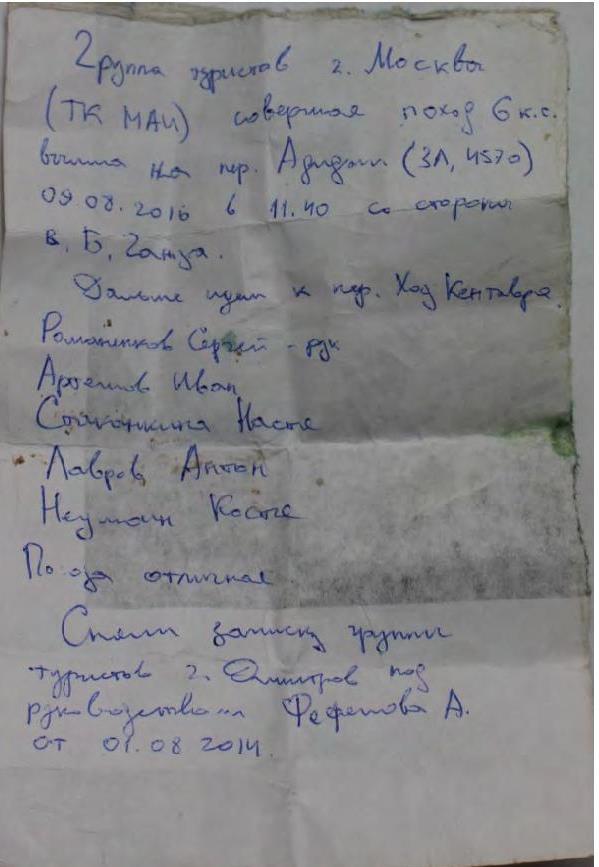 Группа туристов г. Москвы
(ТК МАИ) совершая поход 6 к.с.
вышла на пер. (3А, 4570)
09.08.2016 в 11.40 со стороны
в. Б. Ганза.
Дальше идем к пер. Ход Кентавра.
Романенков Сергей - рук
Артемов Иван
Стаканкина Настя
Лавров Антон
Неумоин Костя
Погода отличная
Сняли записку группы
туристов г. Дмитров под
руководством Фефелова А.
от 01.08 2014.